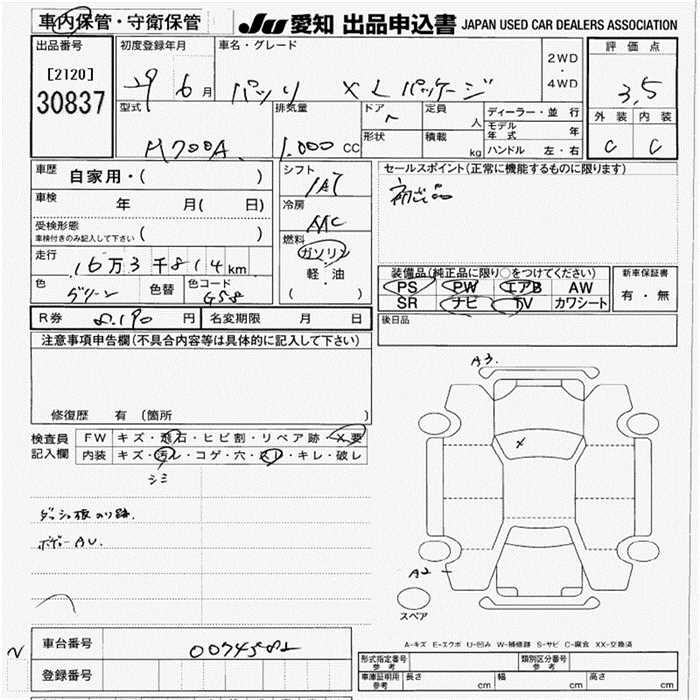 車内保管・守衛保管
JU 愛知 出品申込書 JAPAN USED CAR DEALERS ASSOCIATION
出品番号
[2120]
30837
初度登録年月
29 6月
車名・グレード
パッソ X Lパッケージ
2WD
・
4WD
評価点
3.5
外装 内装
C C
型式
M700A
排気量
1.000 CC
ドア
形状
定員
人
積載
kg
ディーラー・並行
モデル年式 年
ハンドル 左・右
車歴
自家用・( )
車検
年 月( 日)
受検形態
車検付きのみ記入して下さい ( )
走行
16万3千814km
色
グリーン
色替
色コード
G58
シフト
IAT
冷房
AAC
燃料
ガソリン
軽・油
( )
セールスポイント(正常に機能するものに限ります)
装備品(純正品に限り○をつけてください)
PS PW エアB AW
SR ナビ TV カワシート
新車保証書
有・無
後日品
R券 8.190 円 名変期限 月 日
注意事項申告欄(不具合内容等は具体的に記入して下さい)
修復歴 有(箇所 )
検査員
記入欄
FW キズ・飛石・ヒビ割・リペア跡・X要
内装 キズ・汚レ・コゲ・穴・スレ・キレ・破レ
シミ
ダッシュ板のり跡.
ボデーAU.
A3.
X
A2
スペア
A-キズ E-エクボ U-凹み W-補修跡 S-サビ C-腐食 XX-交換済
車台番号
登録番号
形式指定番号
参考
類別区分番号
参考
車庫証明用
参考
長さ cm 幅 cm 高さ cm